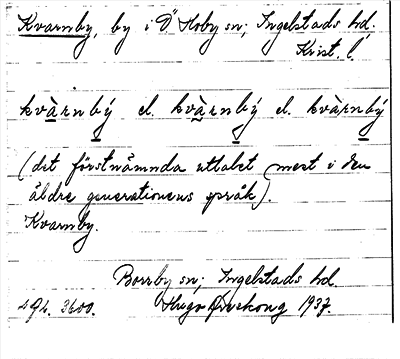 Kvarnby, by i Ö. Hoby sn; Ingelstads hd.
Krist. l.
kvàrnbý el. kvàrnbý el. kvàrnbý
(det förstnämnda uttalet mest i den
äldre generationens språk).
Kvarnby.
Borrby sn; Ingelstads hd.
494. 3600. Hugo Areskoug 1937.